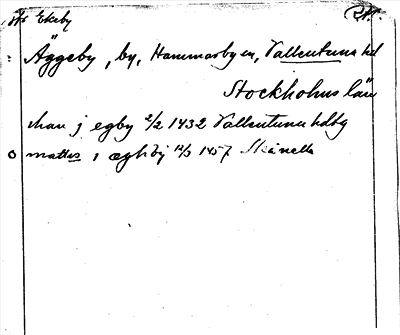 Ekeby
Äggeby, by, Hammarby sn, Vallentuna hd
Stockholms län
i egby 2/2 1432 Vallentuna hdbg
o mattes i æghby 12/3 1457 Skånella